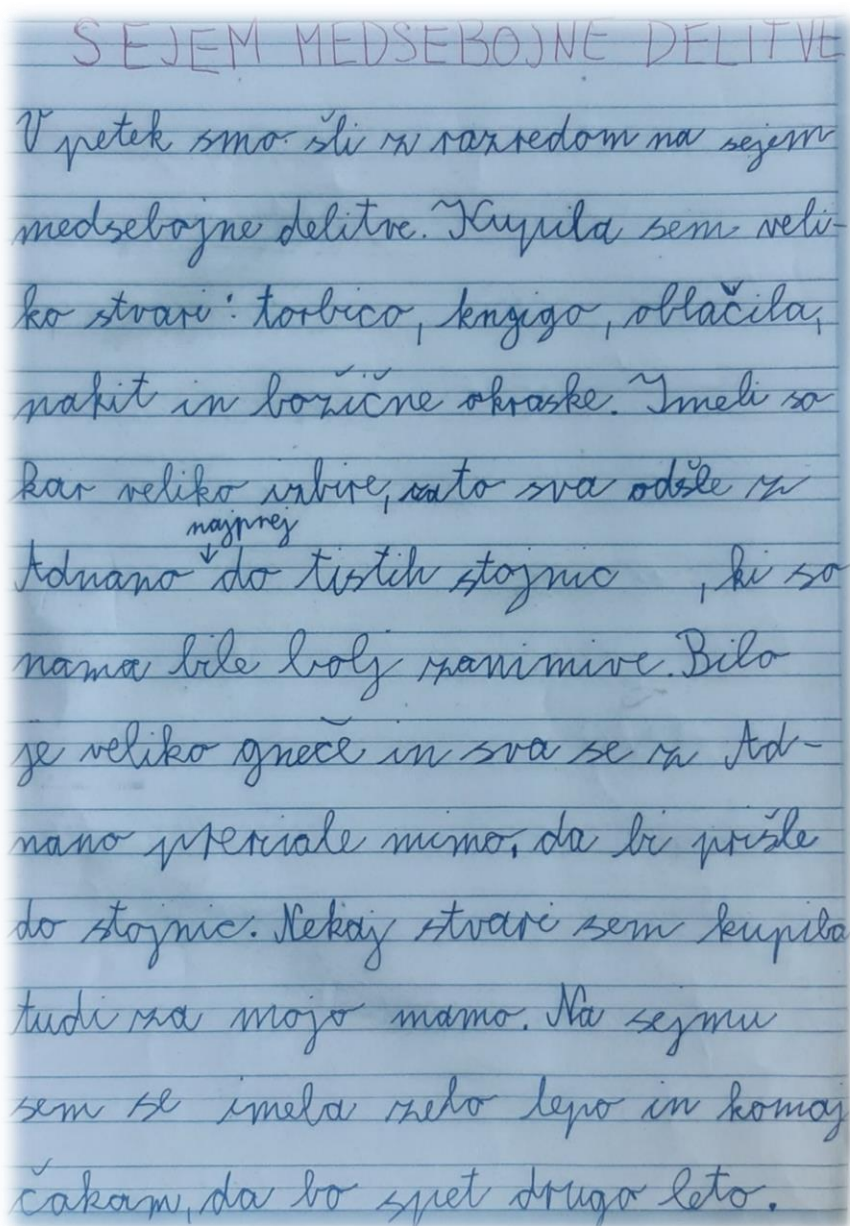 SEJEM MEDSEBOJNE DELITVE
V petek smo šli z razredom na sejem
medsebojne delitve. Kupila sem veli-
ko stvari: torbico, knjigo, oblačila,
nakit in božične okraske. Imeli so
kar veliko izbire, zato sva odšle z
najprej
Adnano do tistih stojnic , ki so
nama bile bolj zanimive. Bilo
je veliko gneče in sva se z Ad-
nano preriale mimo, da bi prišle
do stojnic. Nekaj stvari sem kupila
tudi za mojo mamo. Na sejmu
sem se imela zelo lepo in komaj
čakam, da bo spet drugo leto.